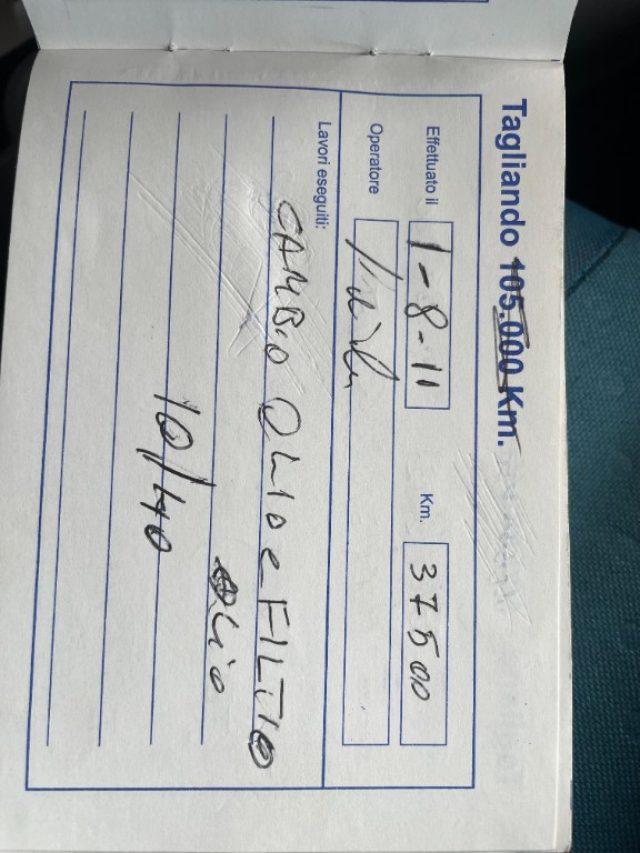 Tagliando 105.000 Km.
Effettuato il 1-8-11 Km. 37500
Operatore
Lavori eseguiti:
CAMBIO OLIO e FILTRO
OLIO
10/40